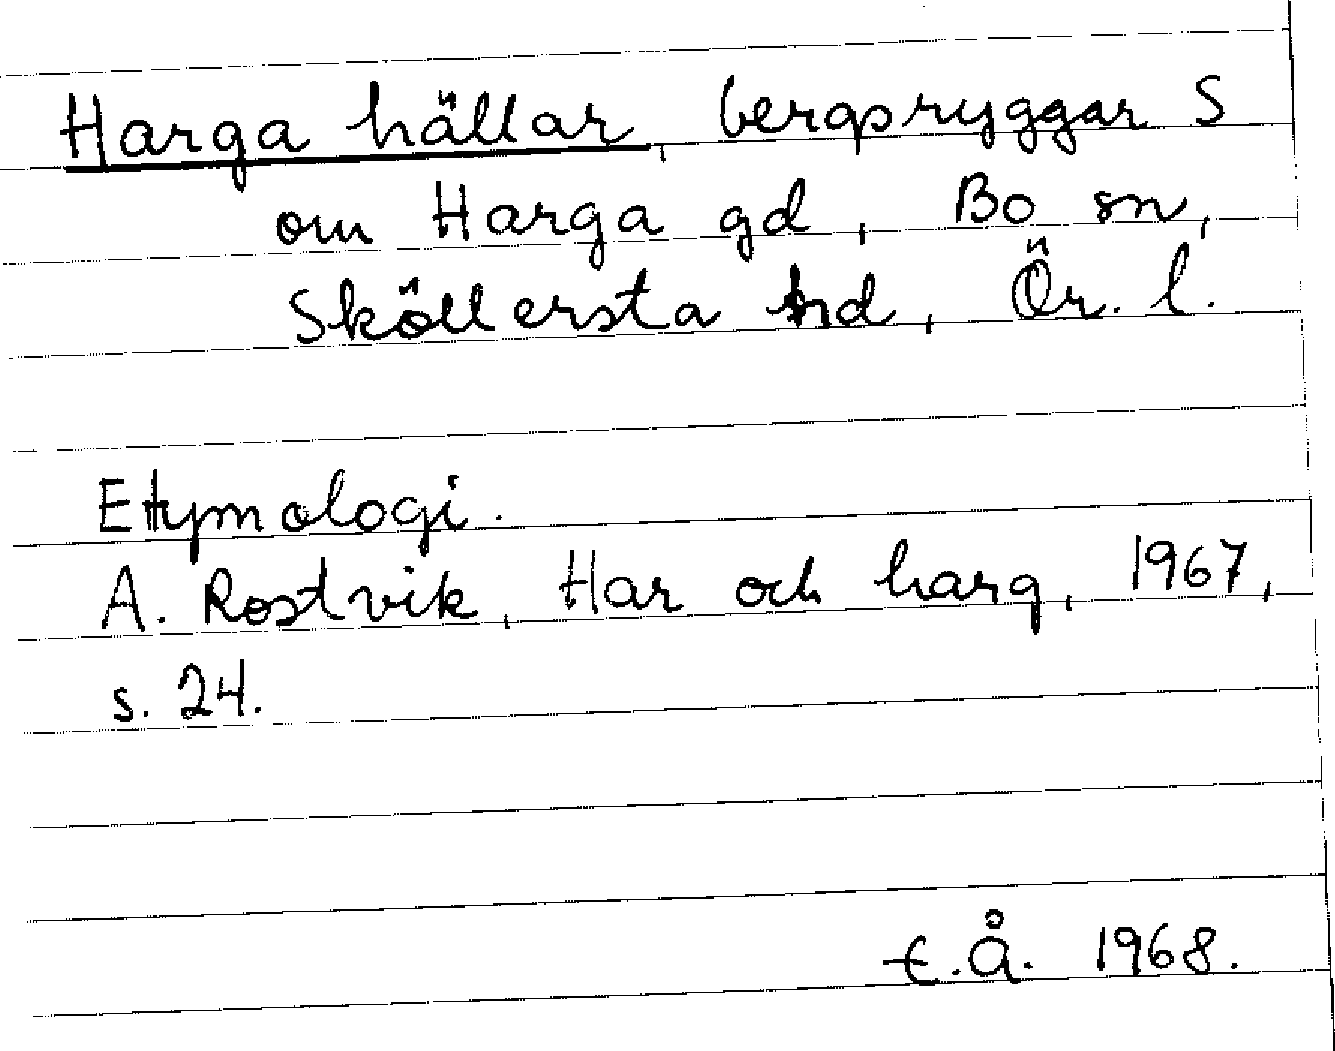 Harga hällar, bergsryggar S
om Harga gd, Bo sn,
Sköllersta hd, Ör. l.
Etymologi.
A. Rostvik, Har och harg, 1967,
s. 24.
t.Å. 1968.